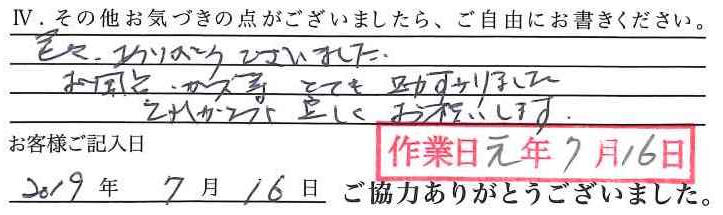 Ⅳ. その他お気づきの点がございましたら、ご自由にお書きください。
色々、ありがとうございました。
とても 助かりました
宜しく お願いします。
お客様ご記入日
作業日元年7月16日
2019年 7月 16日 ご協力ありがとうございました。